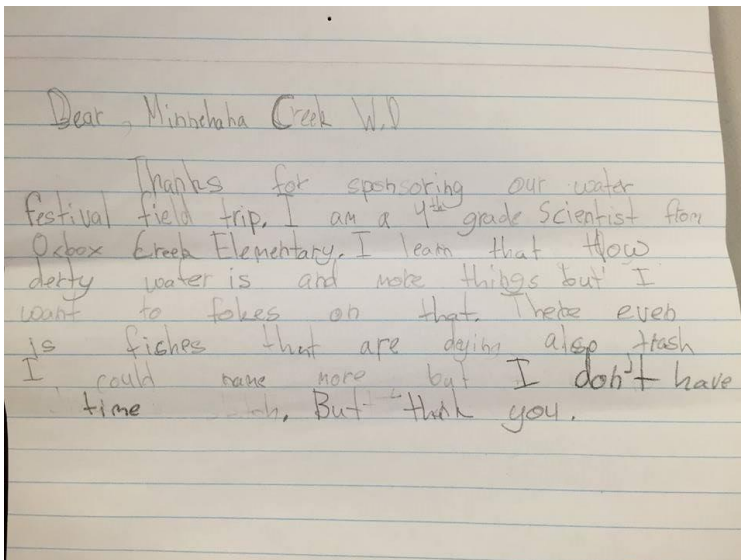 Dear, Minnehaha Creek W.D
Thanks for sponsoring our water
festival field trip. I am a 4th grade Scientist from
Oxbox Creek Elementary. I learn that How
derty water is and more things but I
want to fokes on that. There even
is fishes that are dying also trash
I could name more but I don't have
time But thank you.